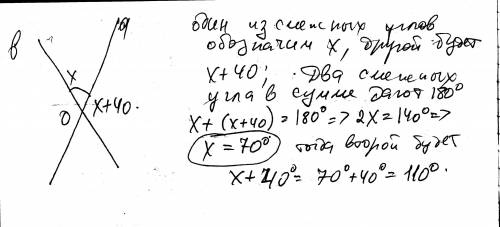 в
а
x
x+40.
O
один из смежных углов
обозначим x, другой будет
x+40; Два смежных
угла в сумме дают 180°
x+(x+40)=180°=>2x=140°=>
x=70° тогда второй будет
x+40°=70°+40°=110°.